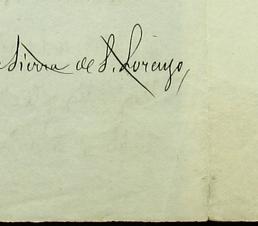 Sierra de S. Lorenzo,